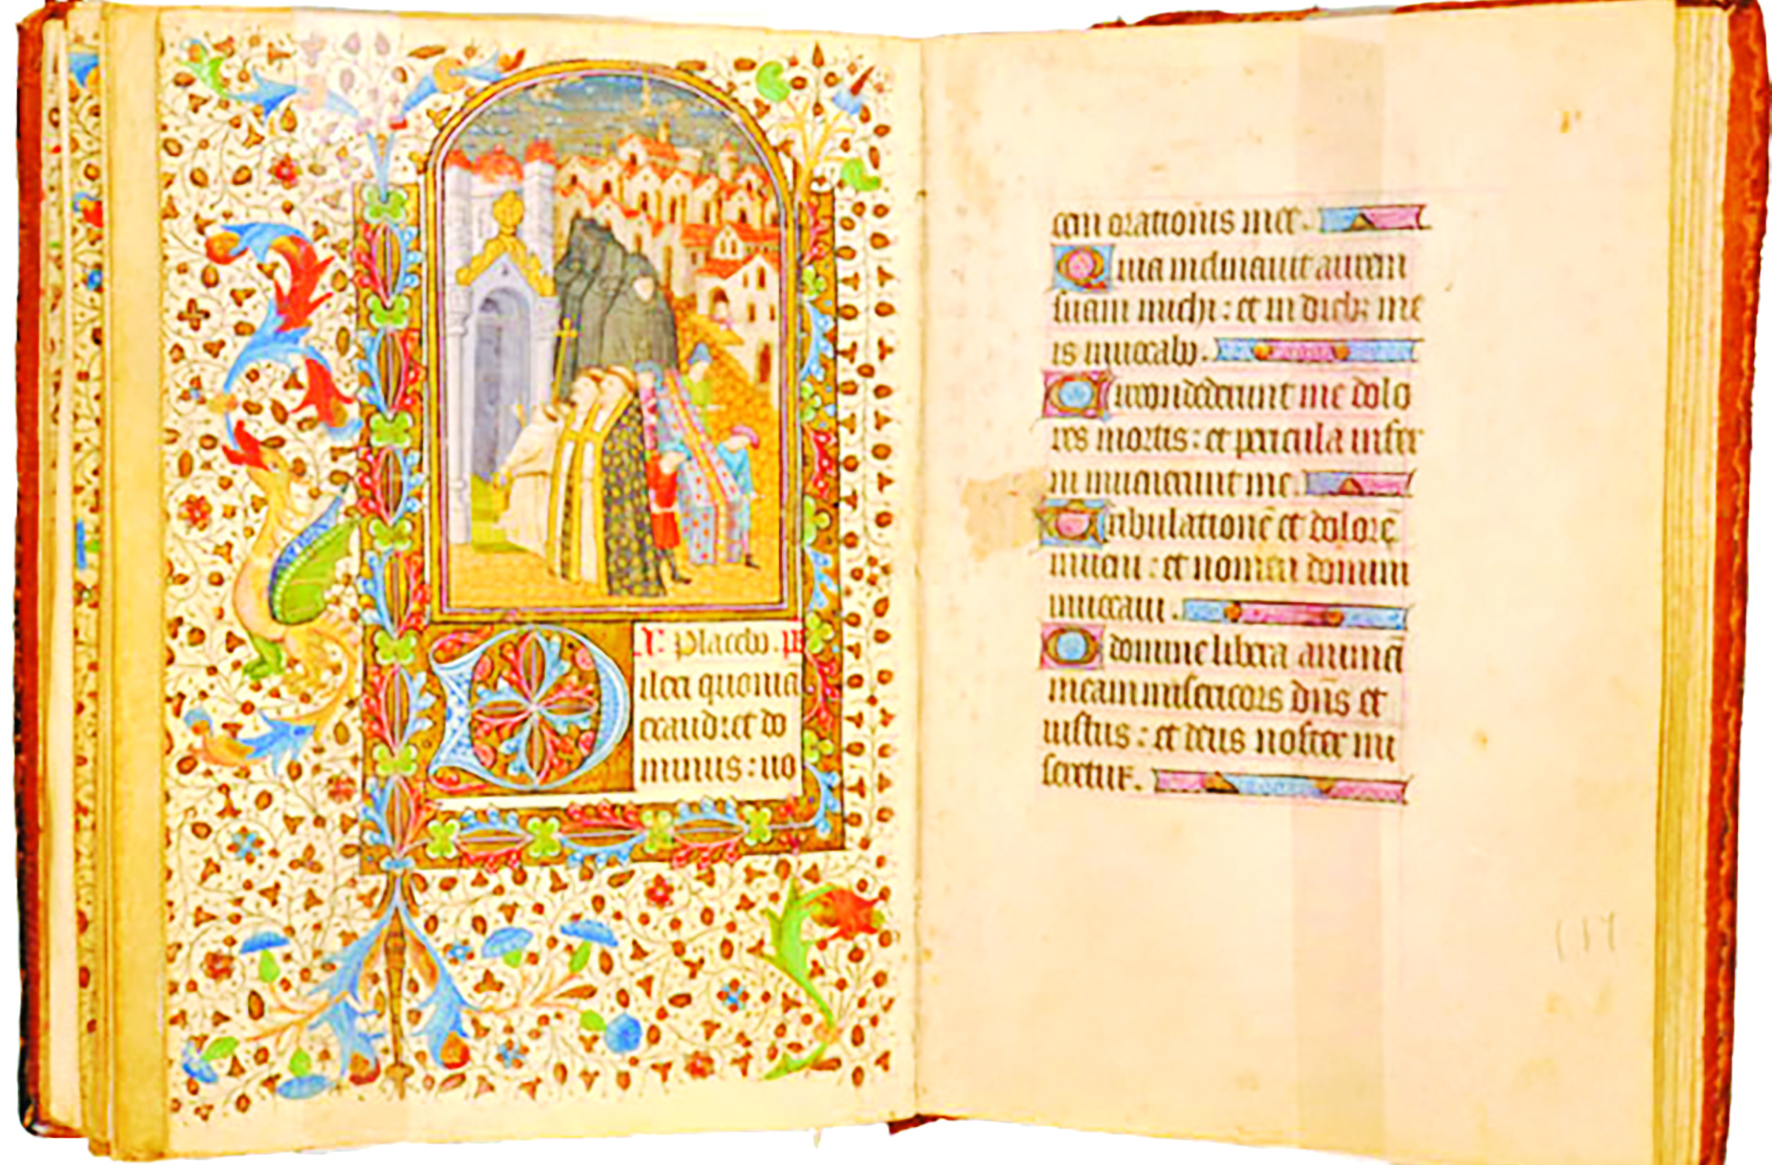 A. Placebo. ps
Dilexi quonia
exaudiet do
minus : uo
cem orationis mee.
Quia inclinauit aurem
suam michi : et in dieb; me
is inuocabo.
Circondederunt me dolo
res mortis : et pericula infer
ni inuenerunt me
Tribulationē et dolorē
inueni : et nomen domini
inuocaui.
O domine libera animā
meam misericors dñs et
iustus : et deus noster mi
seretur.